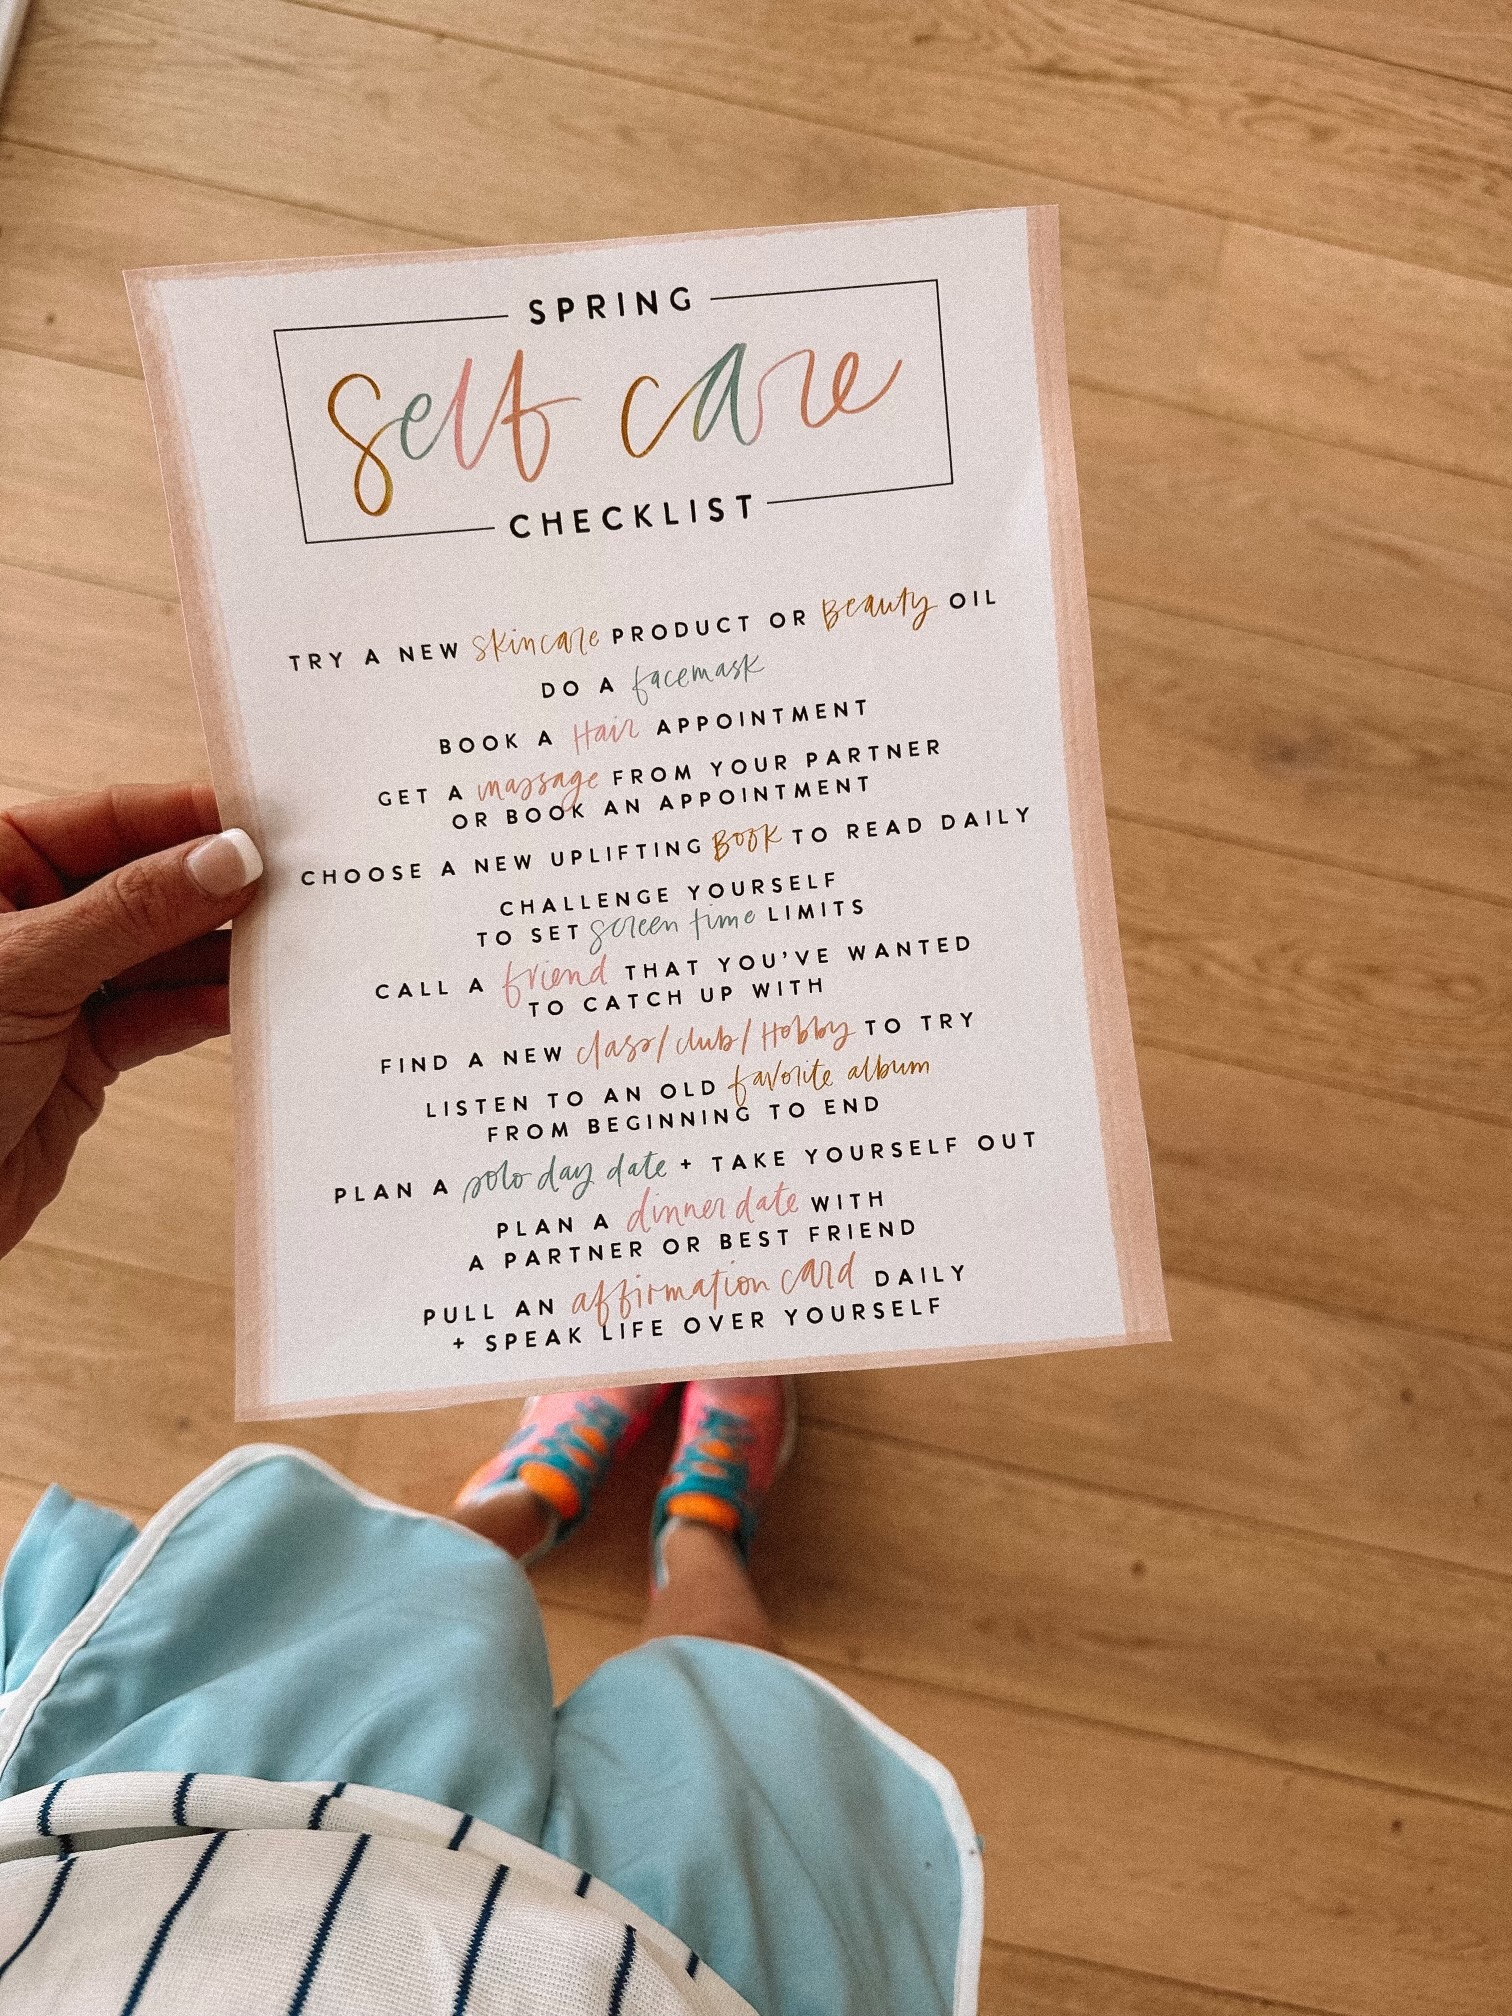 SPRING
self care
CHECKLIST
TRY A NEW skincare PRODUCT OR Beauty OIL
DO A facemask
BOOK A Hair APPOINTMENT
GET A massage FROM YOUR PARTNER
OR BOOK AN APPOINTMENT
CHOOSE A NEW UPLIFTING BOOK TO READ DAILY
CHALLENGE YOURSELF
TO SET screen time LIMITS
CALL A friend THAT YOU'VE WANTED
TO CATCH UP WITH
FIND A NEW class/club/Hobby TO TRY
LISTEN TO AN OLD favorite album
FROM BEGINNING TO END
PLAN A solo day date + TAKE YOURSELF OUT
PLAN A dinner date WITH
A PARTNER OR BEST FRIEND
PULL AN affirmation card DAILY
+ SPEAK LIFE OVER YOURSELF